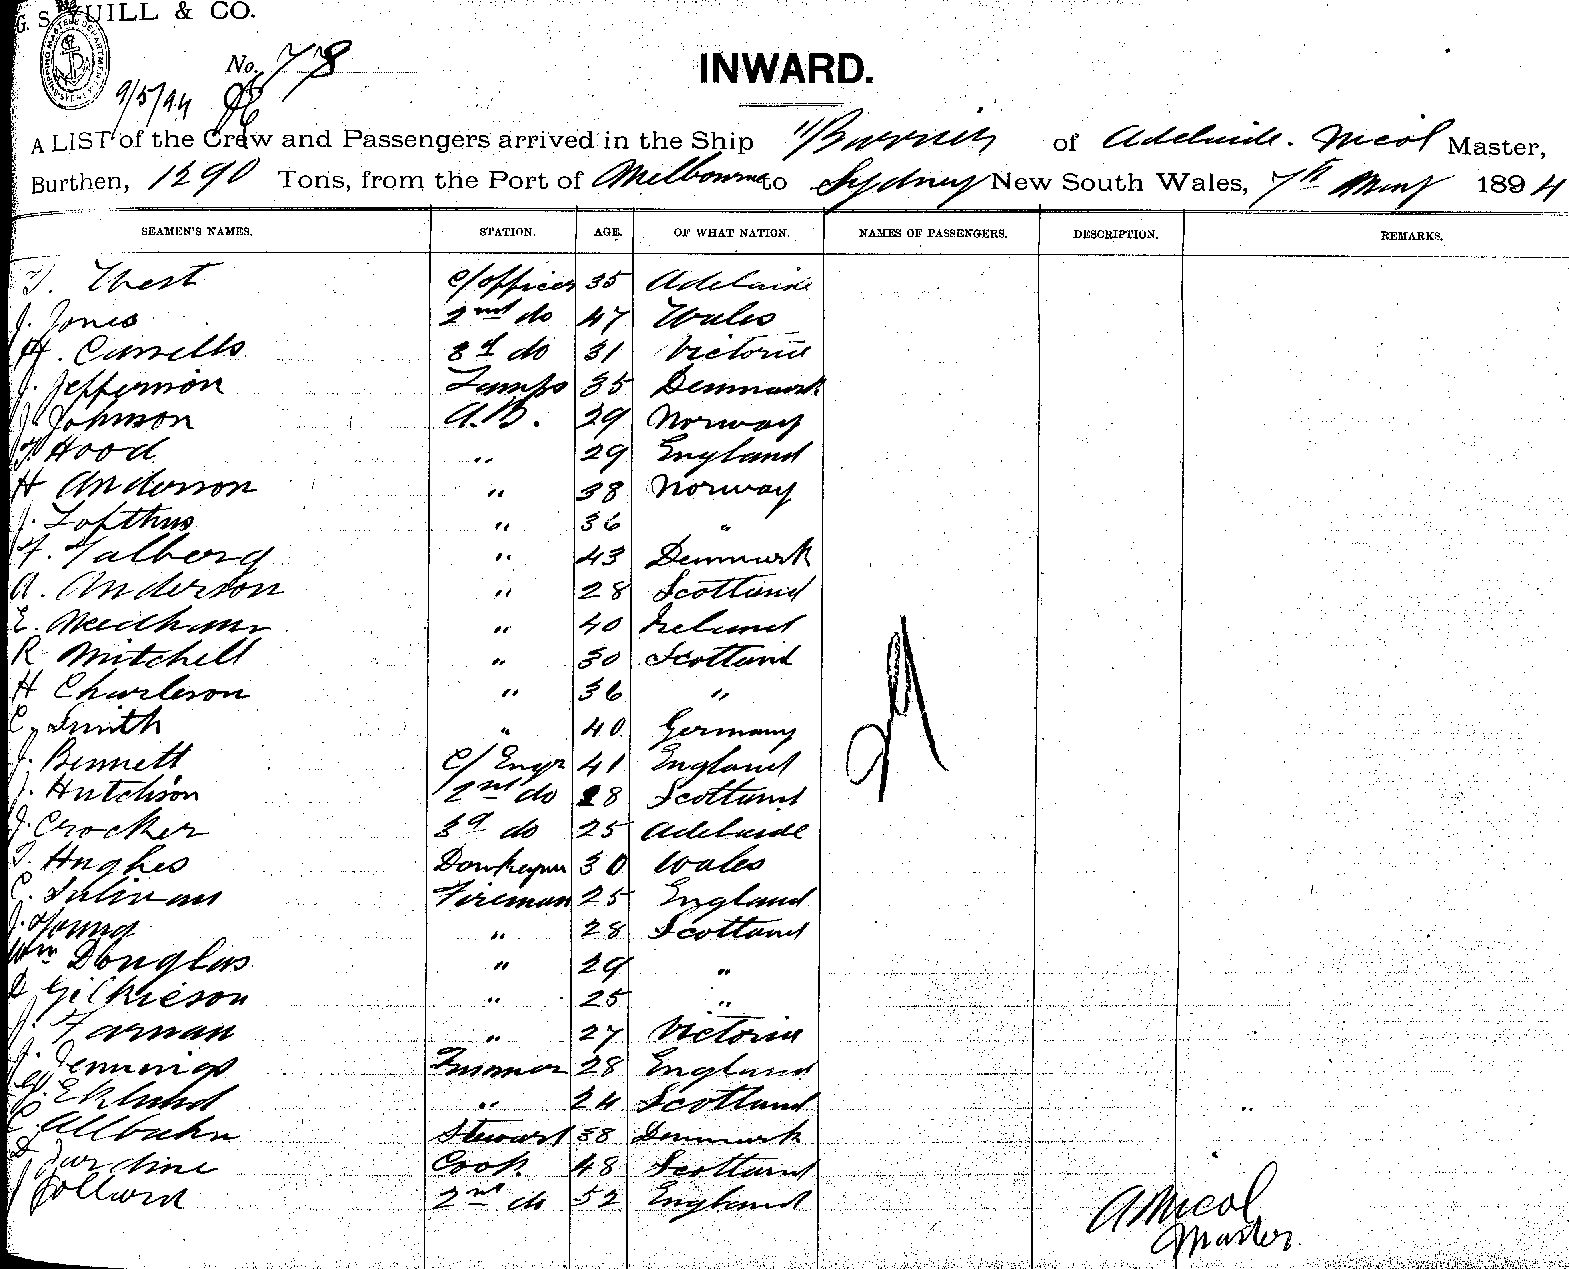 G. S. YUILL & CO.
No. 78
9/5/94
INWARD.
A LIST of the Crew and Passengers arrived in the Ship of Adelaide. Nicol Master,
Burthen, 1290 Tons, from the Port of Melbourne to Sydney New South Wales, 7th May 1894
SEAMEN'S NAMES. STATION. AGE. OF WHAT NATION. NAMES OF PASSENGERS. DESCRIPTION. REMARKS.
C/officer 35 Adelaide
J. Jones 2nd do 47 Wales
H. 3d do 31 Victoria
J. Lamps 35 Denmark
J. Johnson A.B. 29 Norway
Hood " 29 England
H Anderson " 38 Norway
J. Lofthus " 36 "
" 43 Denmark
A. Anderson " 28 Scotland
E. Needham " 40 Ireland
R Mitchell " 30 Scotland
H Charleson " 36 "
C. Smith " 40 Germany
J. Bennett C/ Engr 41 England
J. Hutchison 2nd do 28 Scotland
J. Crocker 3d do 25 Adelaide
Hughes 30 Wales
C. Sulivan Fireman 25 England
J. Young " 28 Scotland
Wm Douglas " 29 "
D Gilkieson " 25 "
J. Farnan " 27 Victoria
J. Jennings 28 England
Eklund " 24 Scotland
C. Allbuhn Stewart 38 Denmark
D. Jardine Cook 48 Scotland
J Jolliard 2nd do 52 England
A Nicol
Master